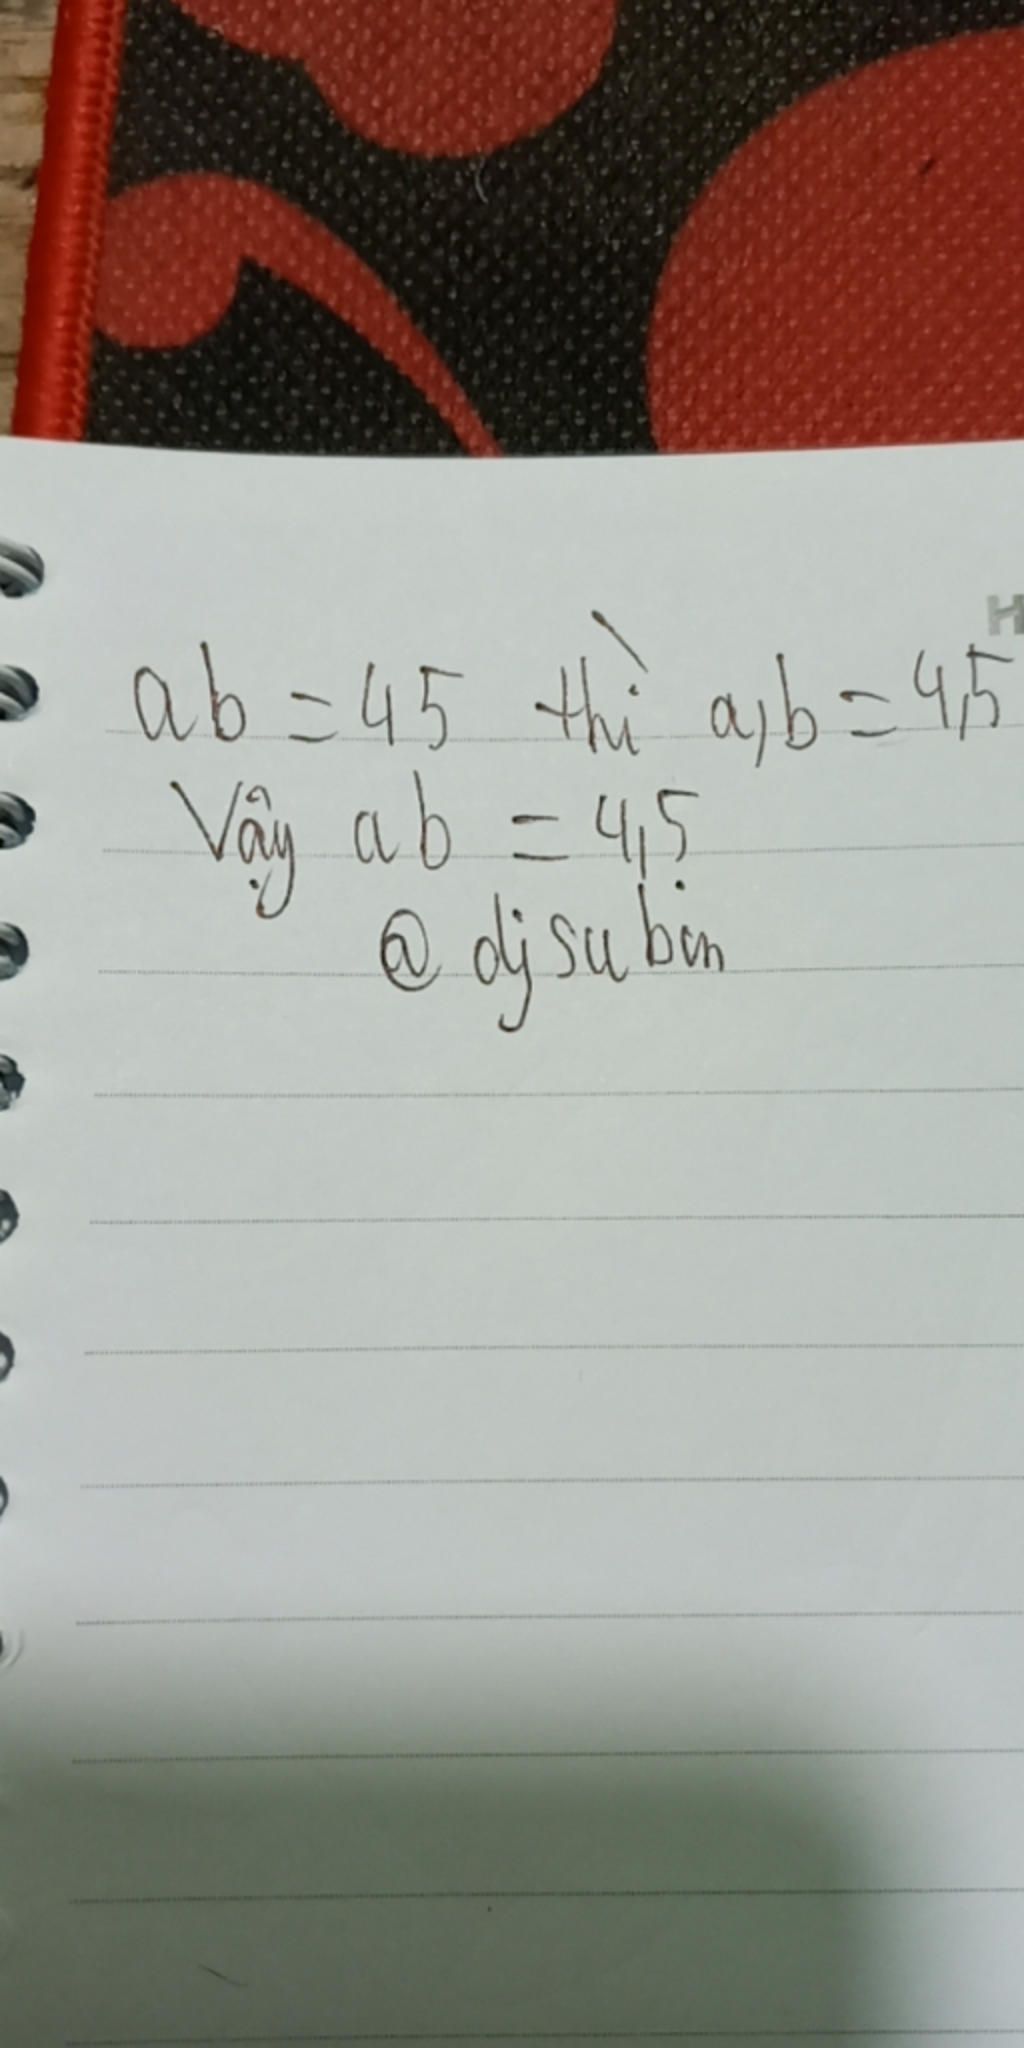 H
ab = 45 thì a,b = 4,5
Vậy ab = 4,5
@ djsubin